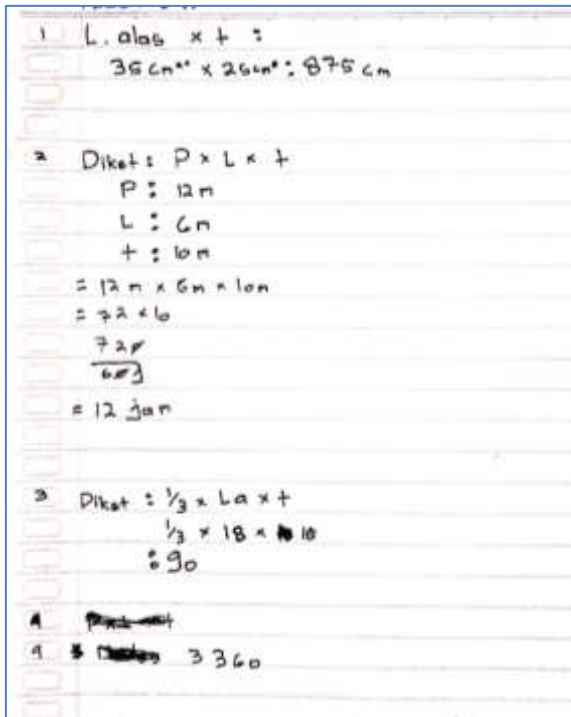 1 L. alas x t :
35 cm x 25 cm : 875 cm
2 Diket : P x L x t
P : 12 m
L : 6 m
t : 10 m
= 12 m x 6m x 10m
= 72 x 10
720
60
= 12 jam
3 Diket : 1/3 x La x t
1/3 x 18 x 10
: 90
4
4 3360